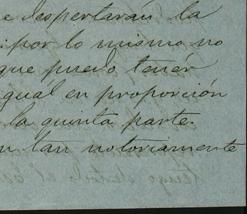 e despertarán la
por lo mismo no
que puedo tener
igual en proporción
la quinta parte.
n tan notoriamente